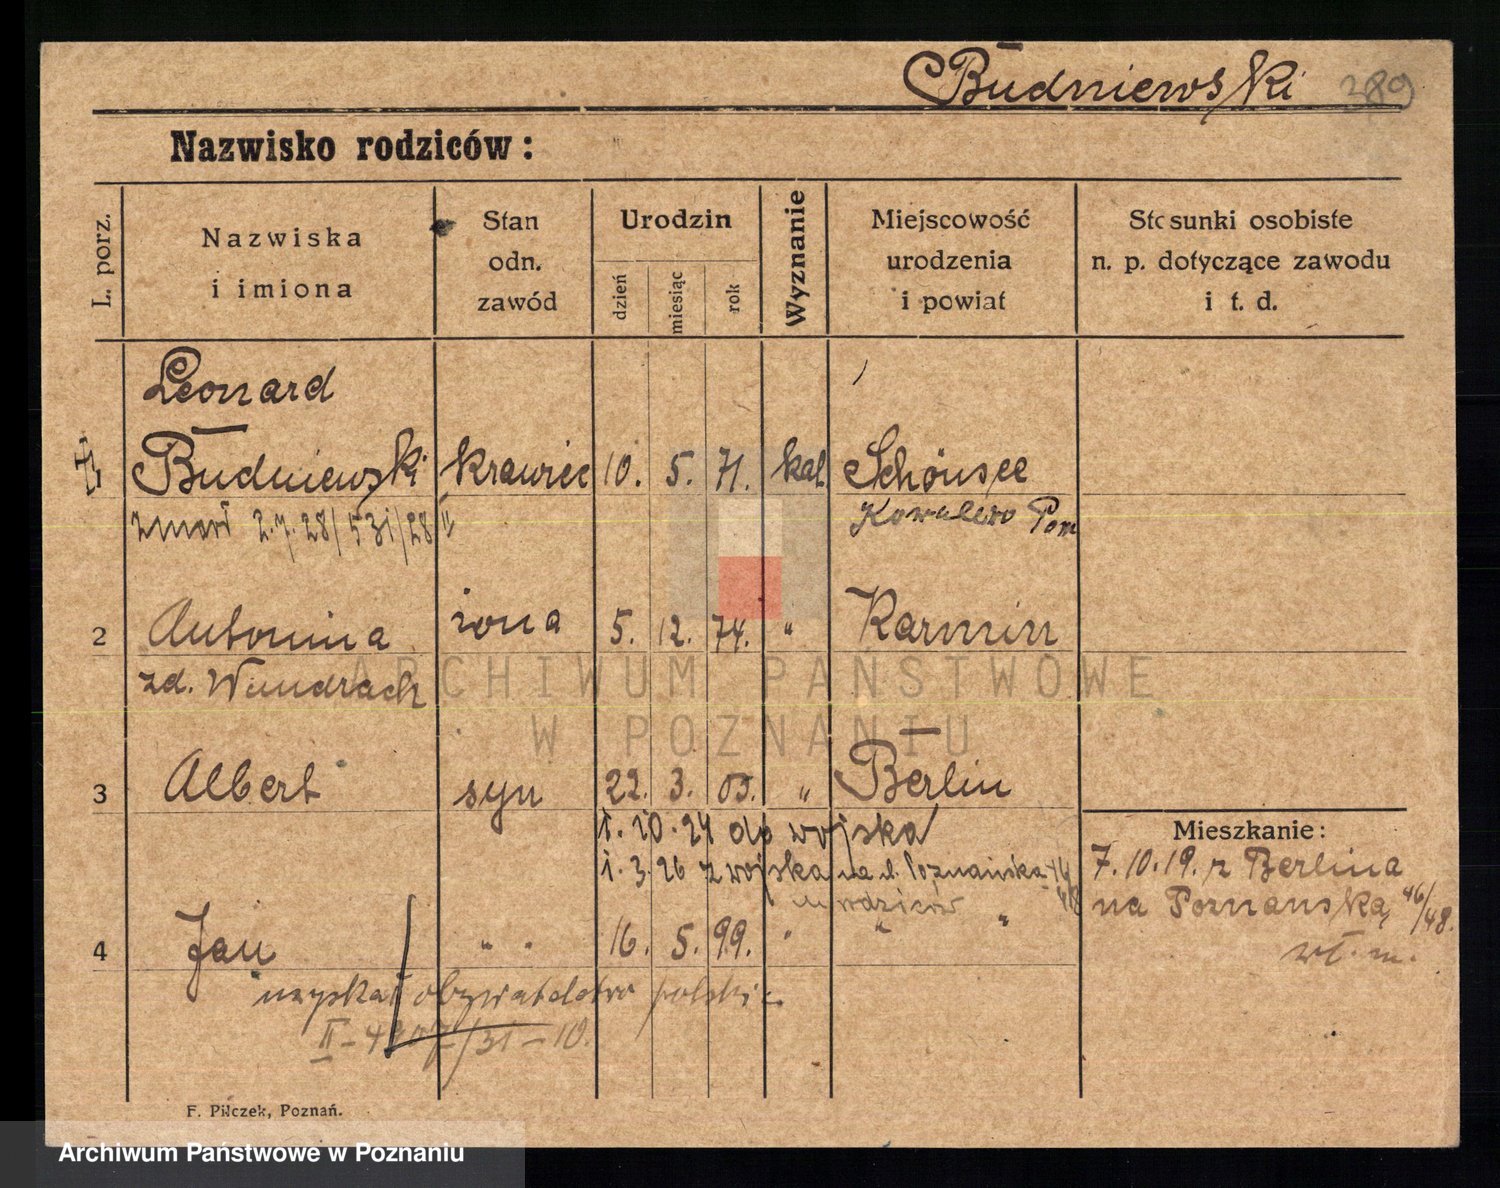 Budniewski 289
Nazwisko rodziców:
L. porz.
Nazwiska i imiona
Stan odn. zawód
Urodzin
dzień
miesiąc
rok
Wyznanie
Miejscowość urodzenia i powiat
Stosunki osobiste n. p. dotyczące zawodu i t. d.
Leonard
Budniewski krawiec 10. 5. 71. kat. Schönsee
zmarł 2.7.28/531/28 Kowalewo Pom
2 Antonina żona 5. 12. 74. " Karmin
zd. Wundrach
ARCHIWUM PAŃSTWOWE
W POZNANIU
3 Albert syn 22. 3. 03. " Berlin
1.10.24 do wojska
1.3.26 z wojska na ul. Poznańska
rodziców
Mieszkanie:
7.10.19. z Berlina
na Poznańską 46/48.
wł. m.
4 Jan " 16. 5. 99. " " "
uzyskał obywatelstwo polskie
F. Pilczek, Poznań.
Archiwum Państwowe w Poznaniu